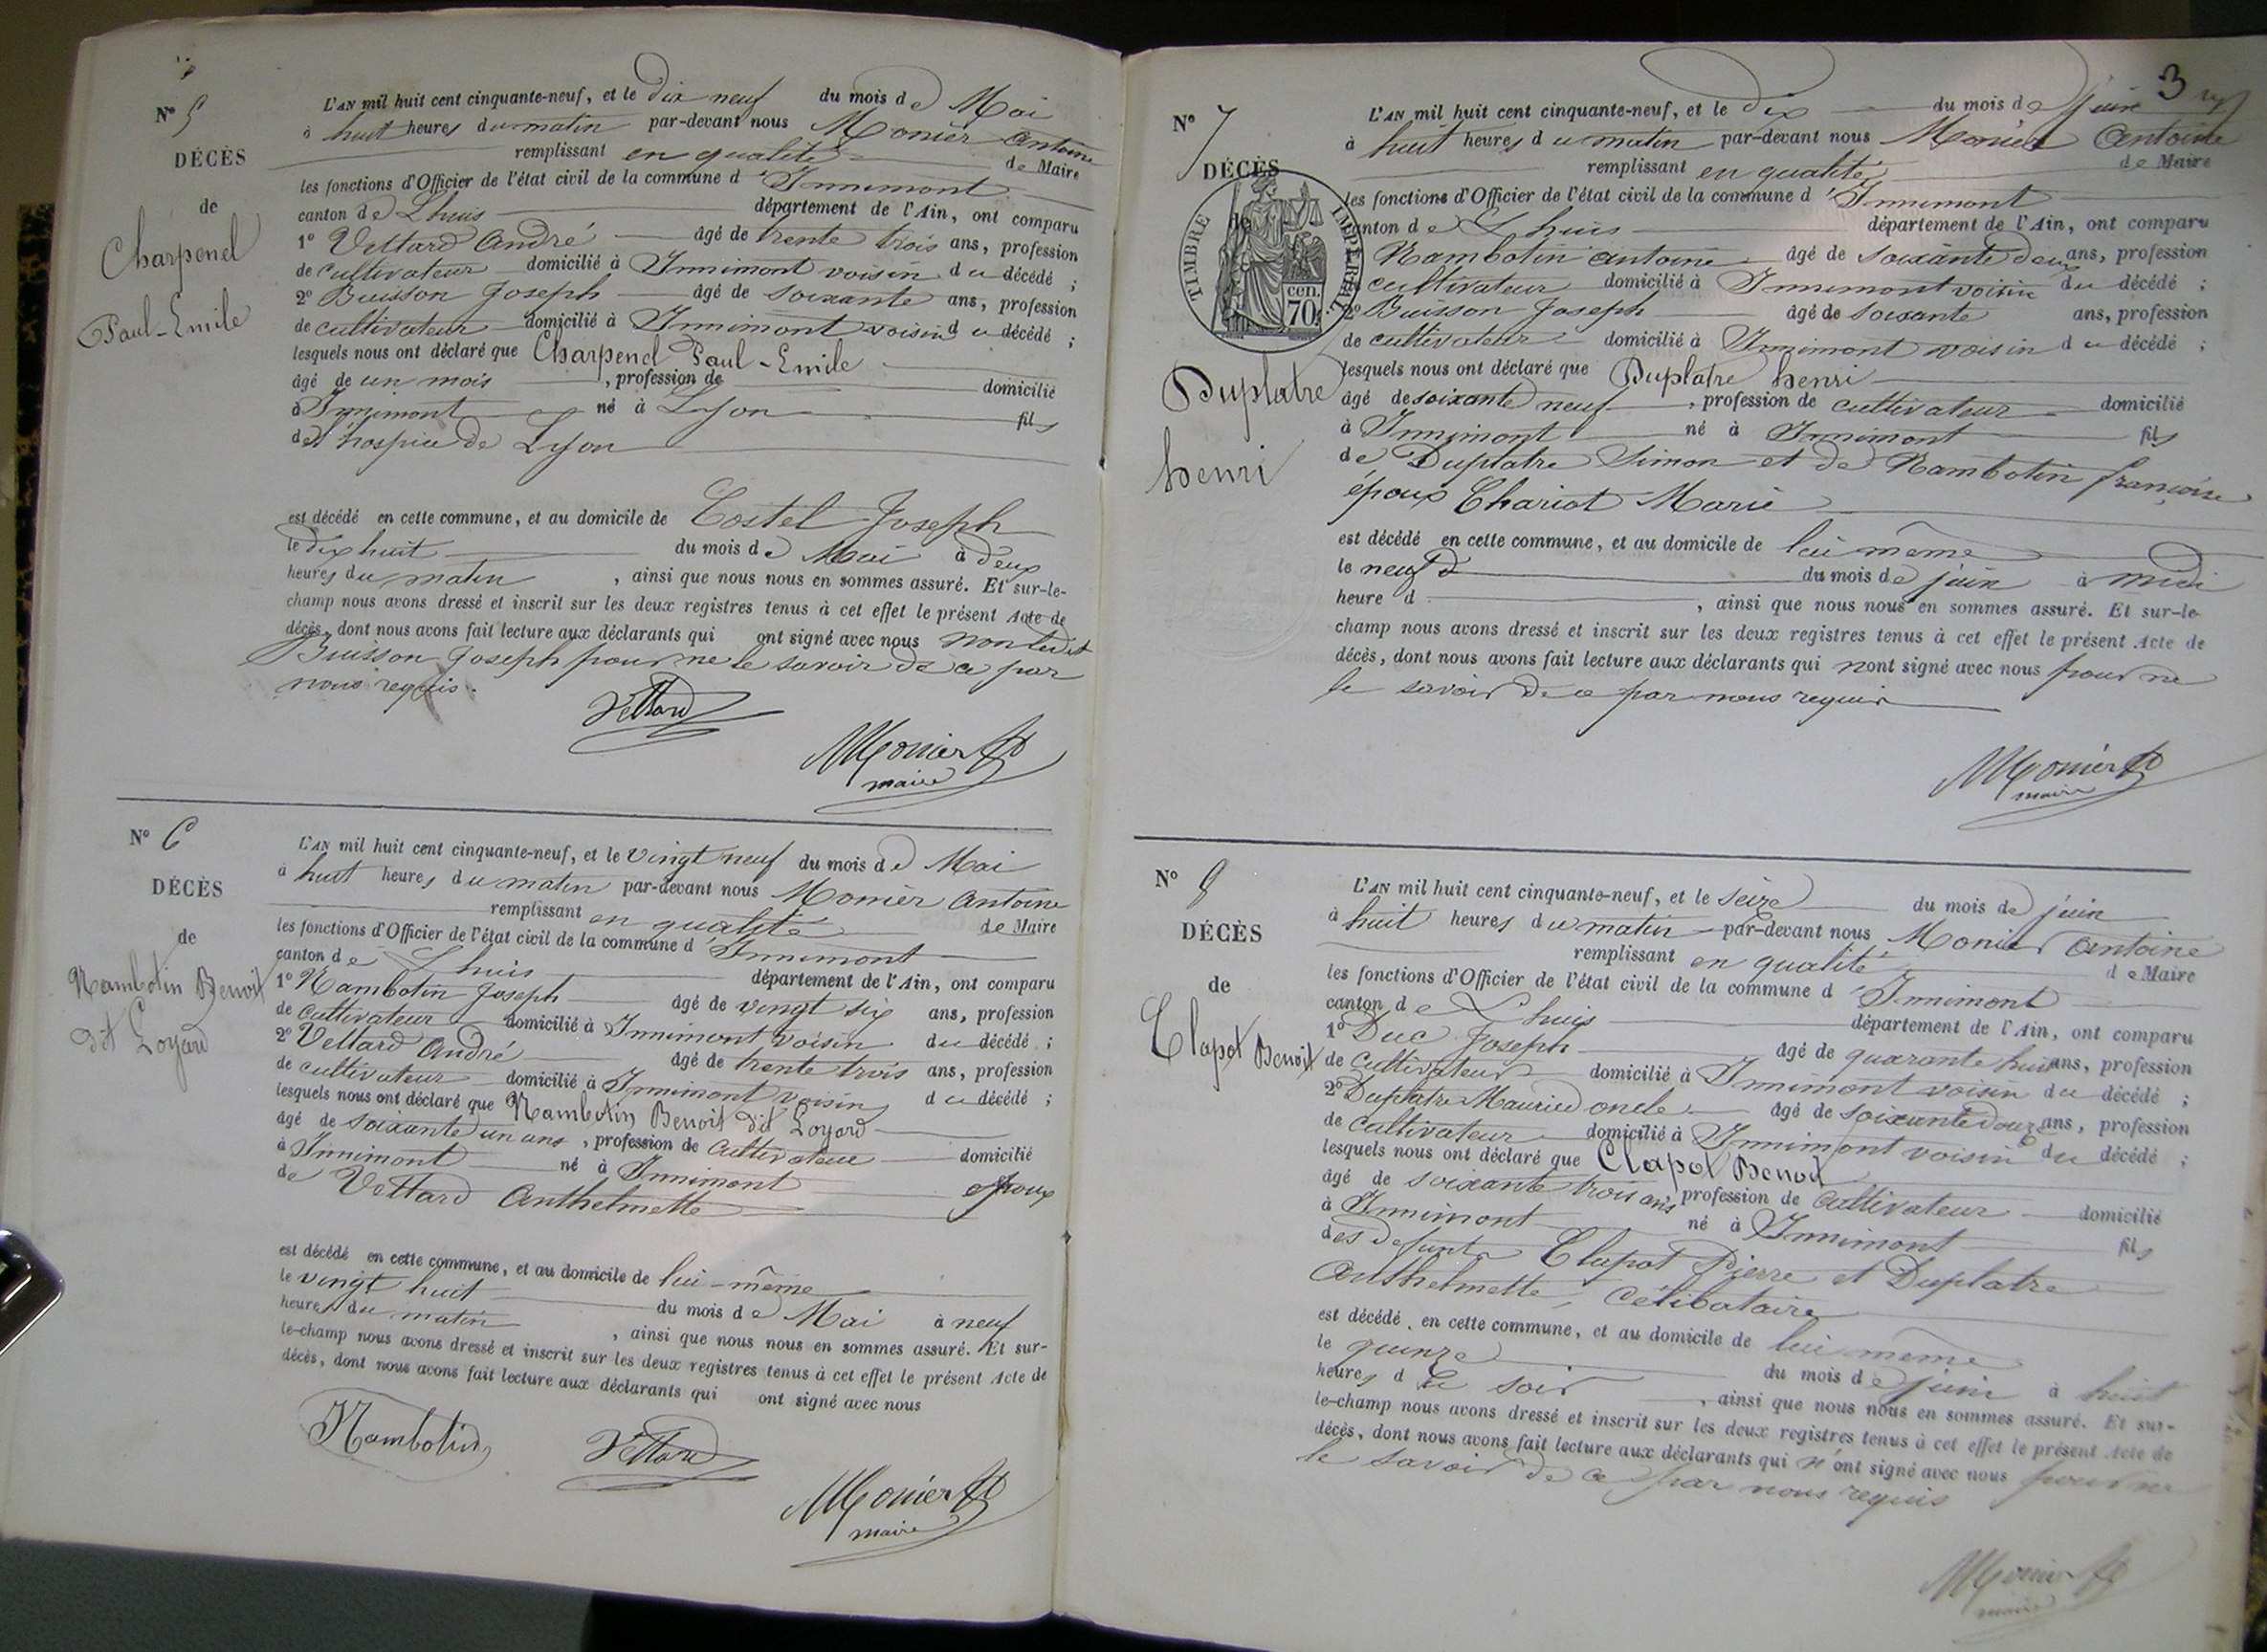 N° 5
DÉCÈS
de
Charpenel
Paul-Emile
L'AN mil huit cent cinquante-neuf, et le dix neuf du mois de Mai
à huit heures du matin par-devant nous Monier Antoine
remplissant en qualité de Maire
les fonctions d'Officier de l'état civil de la commune d'Innimont
canton de Lhuis département de l'Ain, ont comparu
1° Vettard André âgé de trente trois ans, profession
de cultivateur domicilié à Innimont voisin du décédé ;
2° Buisson Joseph âgé de soixante ans, profession
de cultivateur domicilié à Innimont voisin du décédé ;
lesquels nous ont déclaré que Charpenel Paul-Emile
âgé de un mois , profession de domicilié
à Innimont né à Lyon fils
de l'hospice de Lyon
est décédé en cette commune, et au domicile de Costel Joseph
le dix huit du mois de Mai à deux
heures du matin , ainsi que nous nous en sommes assuré. Et sur-le-
champ nous avons dressé et inscrit sur les deux registres tenus à cet effet le présent Acte de
décès, dont nous avons fait lecture aux déclarants qui ont signé avec nous non ledit
Buisson Joseph pour ne le savoir de ce par
nous requis.
Vettard
Monier A
maire
N° 6
DÉCÈS
de
Nambotin Benoit
dit Loyard
L'AN mil huit cent cinquante-neuf, et le vingt neuf du mois de Mai
à huit heures du matin par-devant nous Monier Antoine
remplissant en qualité de Maire
les fonctions d'Officier de l'état civil de la commune d'Innimont
canton de Lhuis département de l'Ain, ont comparu
1° Nambotin Joseph âgé de vingt six ans, profession
de cultivateur domicilié à Innimont voisin du décédé ;
2° Vettard André âgé de trente trois ans, profession
de cultivateur domicilié à Innimont voisin du décédé ;
lesquels nous ont déclaré que Nambotin Benoit dit Loyard
âgé de soixante un ans , profession de cultivateur domicilié
à Innimont né à Innimont époux
de Vettard Anthelmette
est décédé en cette commune, et au domicile de lui-même
le vingt huit du mois de Mai à neuf
heures du matin , ainsi que nous nous en sommes assuré. Et sur-
le-champ nous avons dressé et inscrit sur les deux registres tenus à cet effet le présent Acte de
décès, dont nous avons fait lecture aux déclarants qui ont signé avec nous
Nambotin
Vettard
Monier A
maire
3
N° 7
DÉCÈS
de
TIMBRE IMPÉRIAL
cen.
70
Duplatre
henri
L'AN mil huit cent cinquante-neuf, et le dix du mois de juin
à huit heures du matin par-devant nous Monier Antoine
remplissant en qualité de Maire
les fonctions d'Officier de l'état civil de la commune d'Innimont
canton de Lhuis département de l'Ain, ont comparu
Nambotin Antoine âgé de soixante deux ans, profession
cultivateur domicilié à Innimont voisin du décédé ;
2° Buisson Joseph âgé de soixante ans, profession
de cultivateur domicilié à Innimont voisin du décédé ;
lesquels nous ont déclaré que Duplatre henri
âgé de soixante neuf , profession de cultivateur domicilié
à Innimont né à Innimont fils
de Duplatre Simon et de Nambotin françoise
époux Chariot Marie
est décédé en cette commune, et au domicile de lui même
le neuf du mois de juin à midi
heure d , ainsi que nous nous en sommes assuré. Et sur-le-
champ nous avons dressé et inscrit sur les deux registres tenus à cet effet le présent Acte de
décès, dont nous avons fait lecture aux déclarants qui nont signé avec nous pour ne
le savoir de ce par nous requis
Monier A
maire
N° 8
DÉCÈS
de
Clapot Benoit
L'AN mil huit cent cinquante-neuf, et le seize du mois de juin
à huit heures du matin par-devant nous Monier Antoine
remplissant en qualité de Maire
les fonctions d'Officier de l'état civil de la commune d'Innimont
canton de Lhuis département de l'Ain, ont comparu
1° Duc Joseph âgé de quarante huit ans, profession
de cultivateur domicilié à Innimont voisin du décédé ;
2° Duplatre Maurice oncle âgé de soixante douze ans, profession
de cultivateur domicilié à Innimont voisin du décédé ;
lesquels nous ont déclaré que Clapot Benoit
âgé de soixante trois ans, profession de cultivateur domicilié
à Innimont né à Innimont fils
des defunts Clapot Pierre et Duplatre
Anthelmette, Célibataire
est décédé en cette commune, et au domicile de lui même
le quinze du mois de juin à huit
heures d le soir , ainsi que nous nous en sommes assuré. Et sur-
le-champ nous avons dressé et inscrit sur les deux registres tenus à cet effet le présent Acte de
décès, dont nous avons fait lecture aux déclarants qui n'ont signé avec nous pour ne
le savoir de ce par nous requis
Monier A
maire